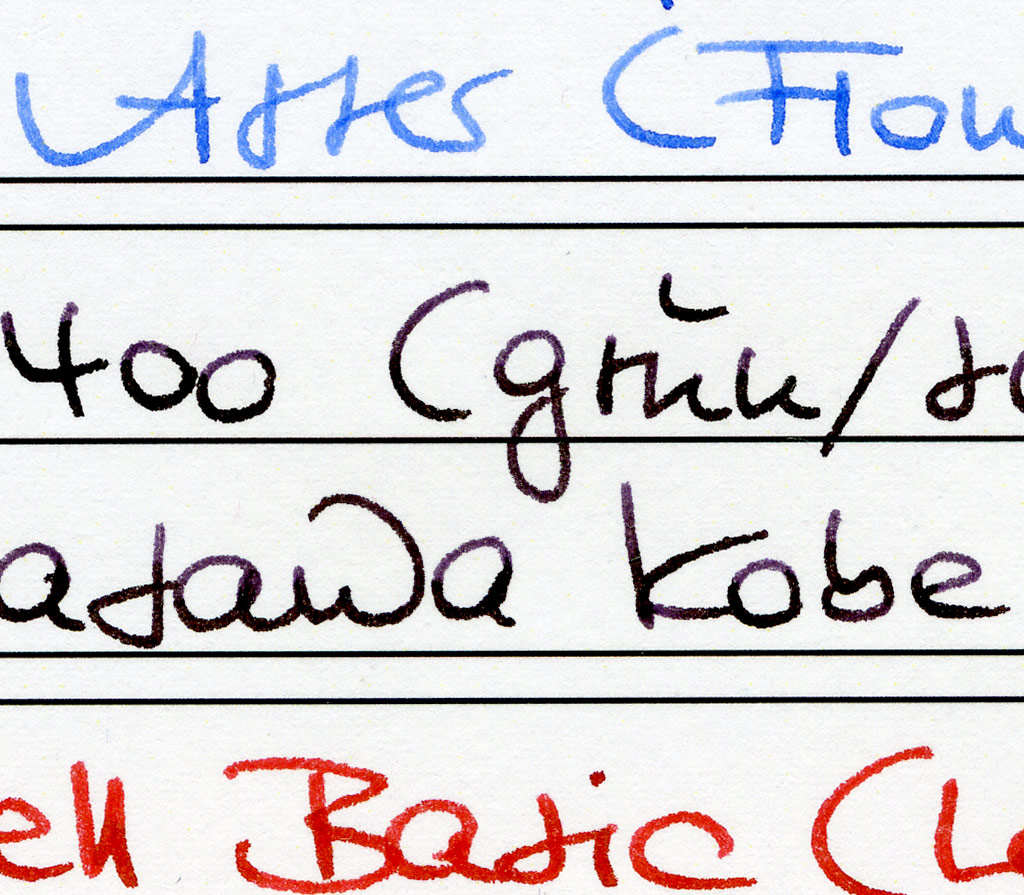 Aster (Flow
400 (grün/s
asawa Kobe
ell Basic (Le